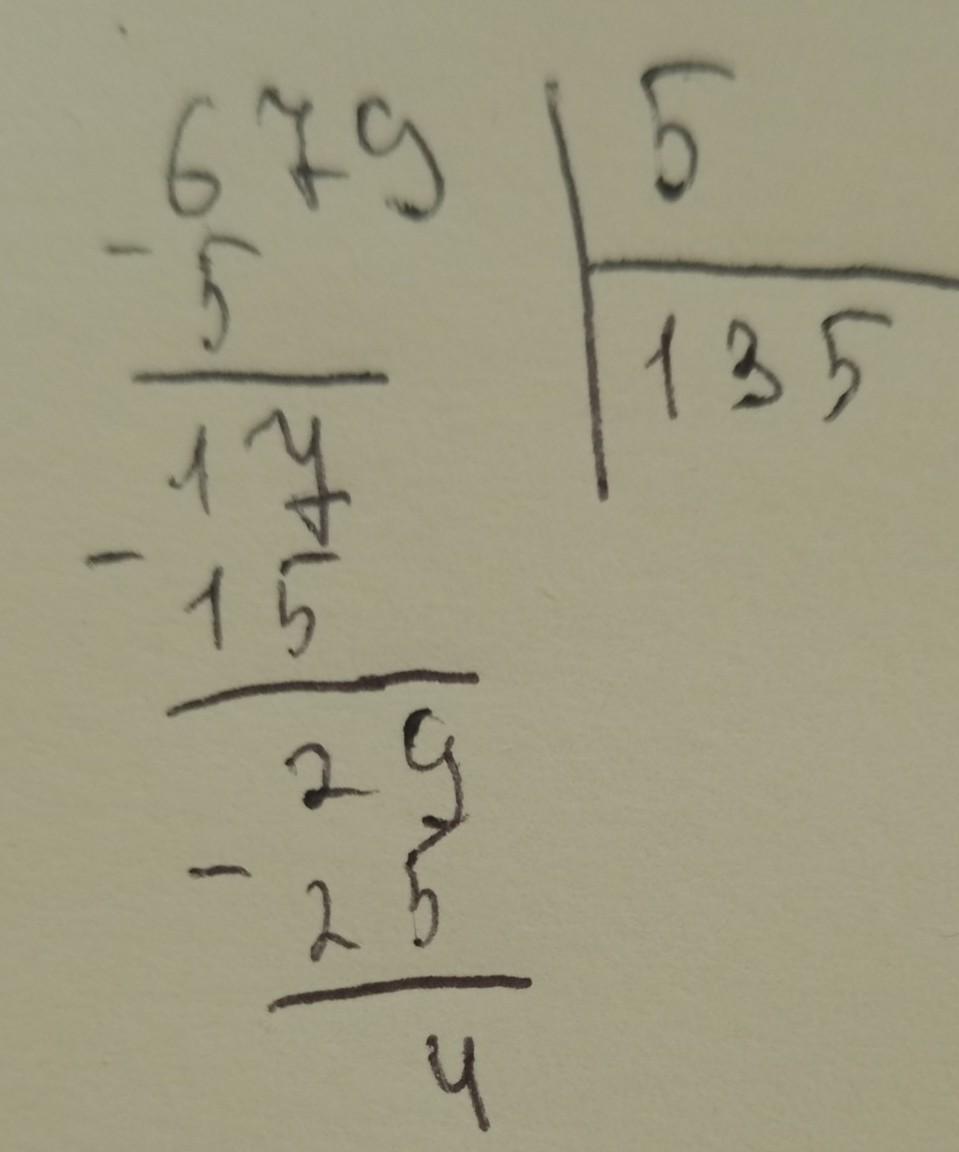 679 5
- 5 135
17
- 15
29
- 25
4